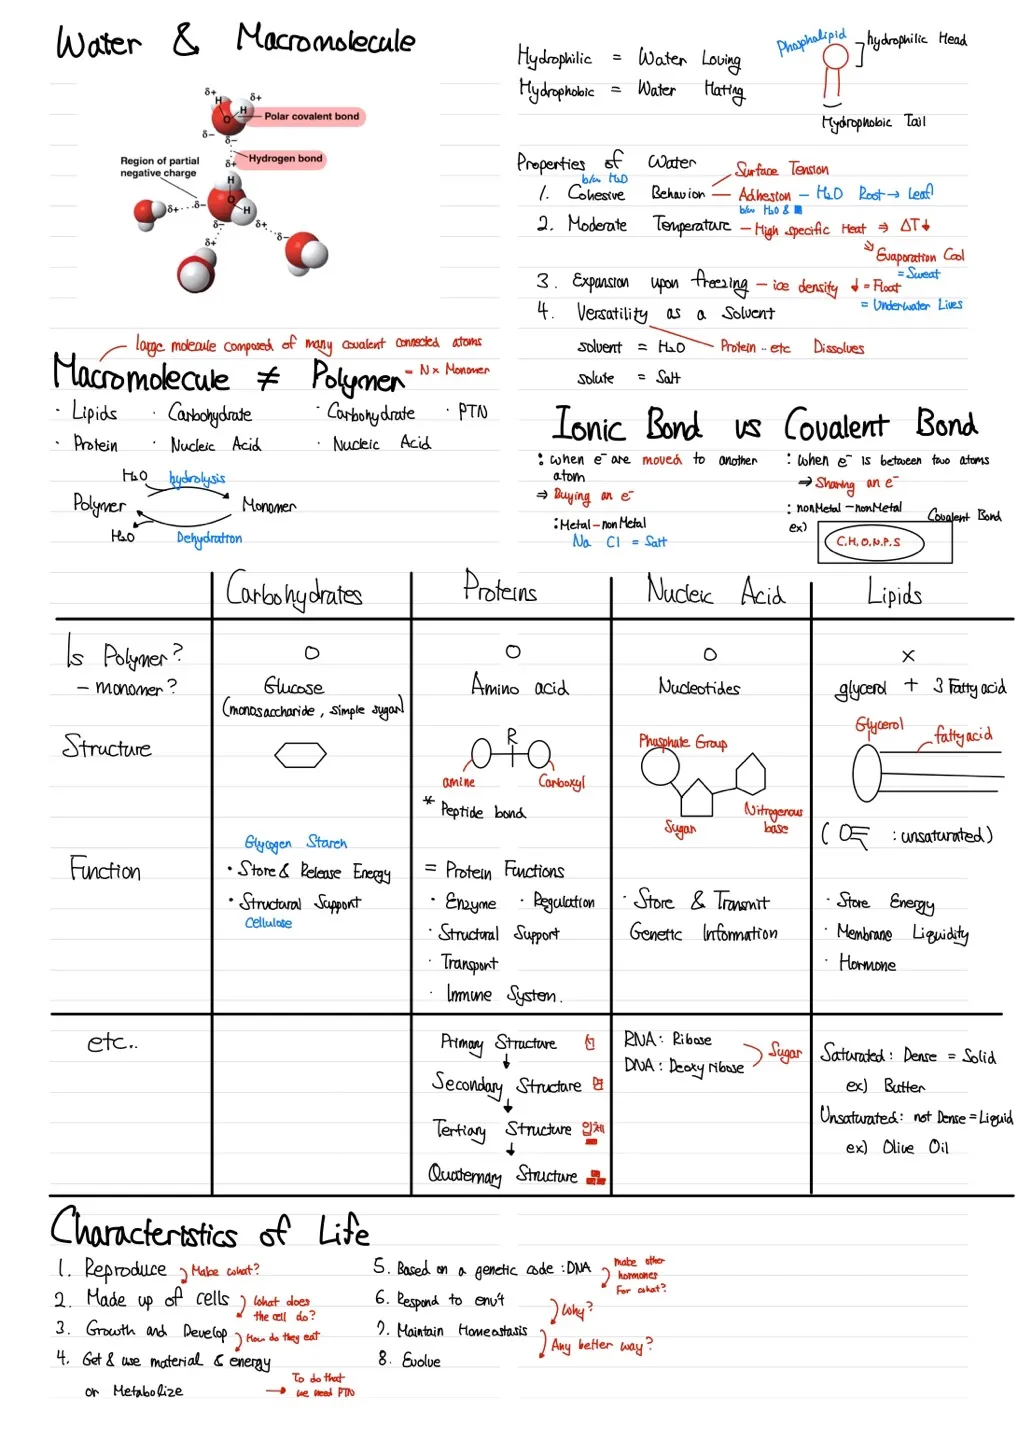 Water & Macromolecule
δ+ H H δ+
O Polar covalent bond
δ- δ-
δ+ Hydrogen bond
Region of partial
negative charge
H
O
H
δ+ δ-
δ- δ+
δ+
Hydrophilic = Water Loving
Hydrophobic = Water Hating
Phosphalipid
hydrophilic Head
Hydrophobic Tail
Properties of Water
b/w H2O
Surface Tension
1. Cohesive Behavior - Adhesion - H2O Root → Leaf
b/w H2O & ■
2. Moderate Temperature - High specific Heat ⇒ ΔT↓
⇒ Evaporation Cool
= Sweat
3. Expansion upon freezing - ice density ↓ = Float
= Underwater Lives
4. Versatility as a Solvent
solvent = H2O
Protein.. etc Dissolves
solute = Salt
large molecule composed of many covalent connected atoms
Macromolecule ≠ Polymer = N x Monomer
· Lipids · Carbohydrate · Carbohydrate · PTN
· Protein · Nucleic Acid · Nucleic Acid
H2O hydrolysis
Polymer Monomer
H2O Dehydration
Ionic Bond vs Covalent Bond
: when e⁻ are moved to another
atom
⇒ Buying an e⁻
: Metal - nonMetal
Na Cl = Salt
: when e⁻ is between two atoms
⇒ Sharing an e⁻
: nonMetal - nonMetal
Covalent Bond
ex)
C.H.O.N.P.S
Carbohydrates Proteins Nucleic Acid Lipids
Is Polymer? O O O X
- monomer? Glucose Amino acid Nucleotides glycerol + 3 Fatty acid
(monosaccharide, simple sugar)
Structure
R
amine Carboxyl
* Peptide bond
Phosphate Group
Sugar
Nitrogenous
base
Glycerol
fatty acid
( : unsaturated)
Function
Glycogen Starch
· Store & Release Energy
· Structural Support
Cellulose
= Protein Functions
· Enzyme · Regulation
· Structural Support
· Transport
· Immune System.
· Store & Transmit
Genetic Information
· Store Energy
· Membrane Liquidity
· Hormone
etc..
Primary Structure 선
↓
Secondary Structure 면
↓
Tertiary Structure 입체
↓
Quaternary Structure
RNA: Ribose
DNA: Deoxyribose
Sugar
Saturated: Dense = Solid
ex) Butter
Unsaturated: not Dense = Liquid
ex) Olive Oil
Characteristics of Life
1. Reproduce
Make what?
2. Made up of cells
What does
the cell do?
3. Growth and Develop
How do they eat
4. Get & use material & energy
or Metabolize
→ To do that
we need PTN
5. Based on a genetic code : DNA
make other
hormones
For what?
6. Respond to env't
Why?
7. Maintain Homeostasis
Any better way?
8. Evolve